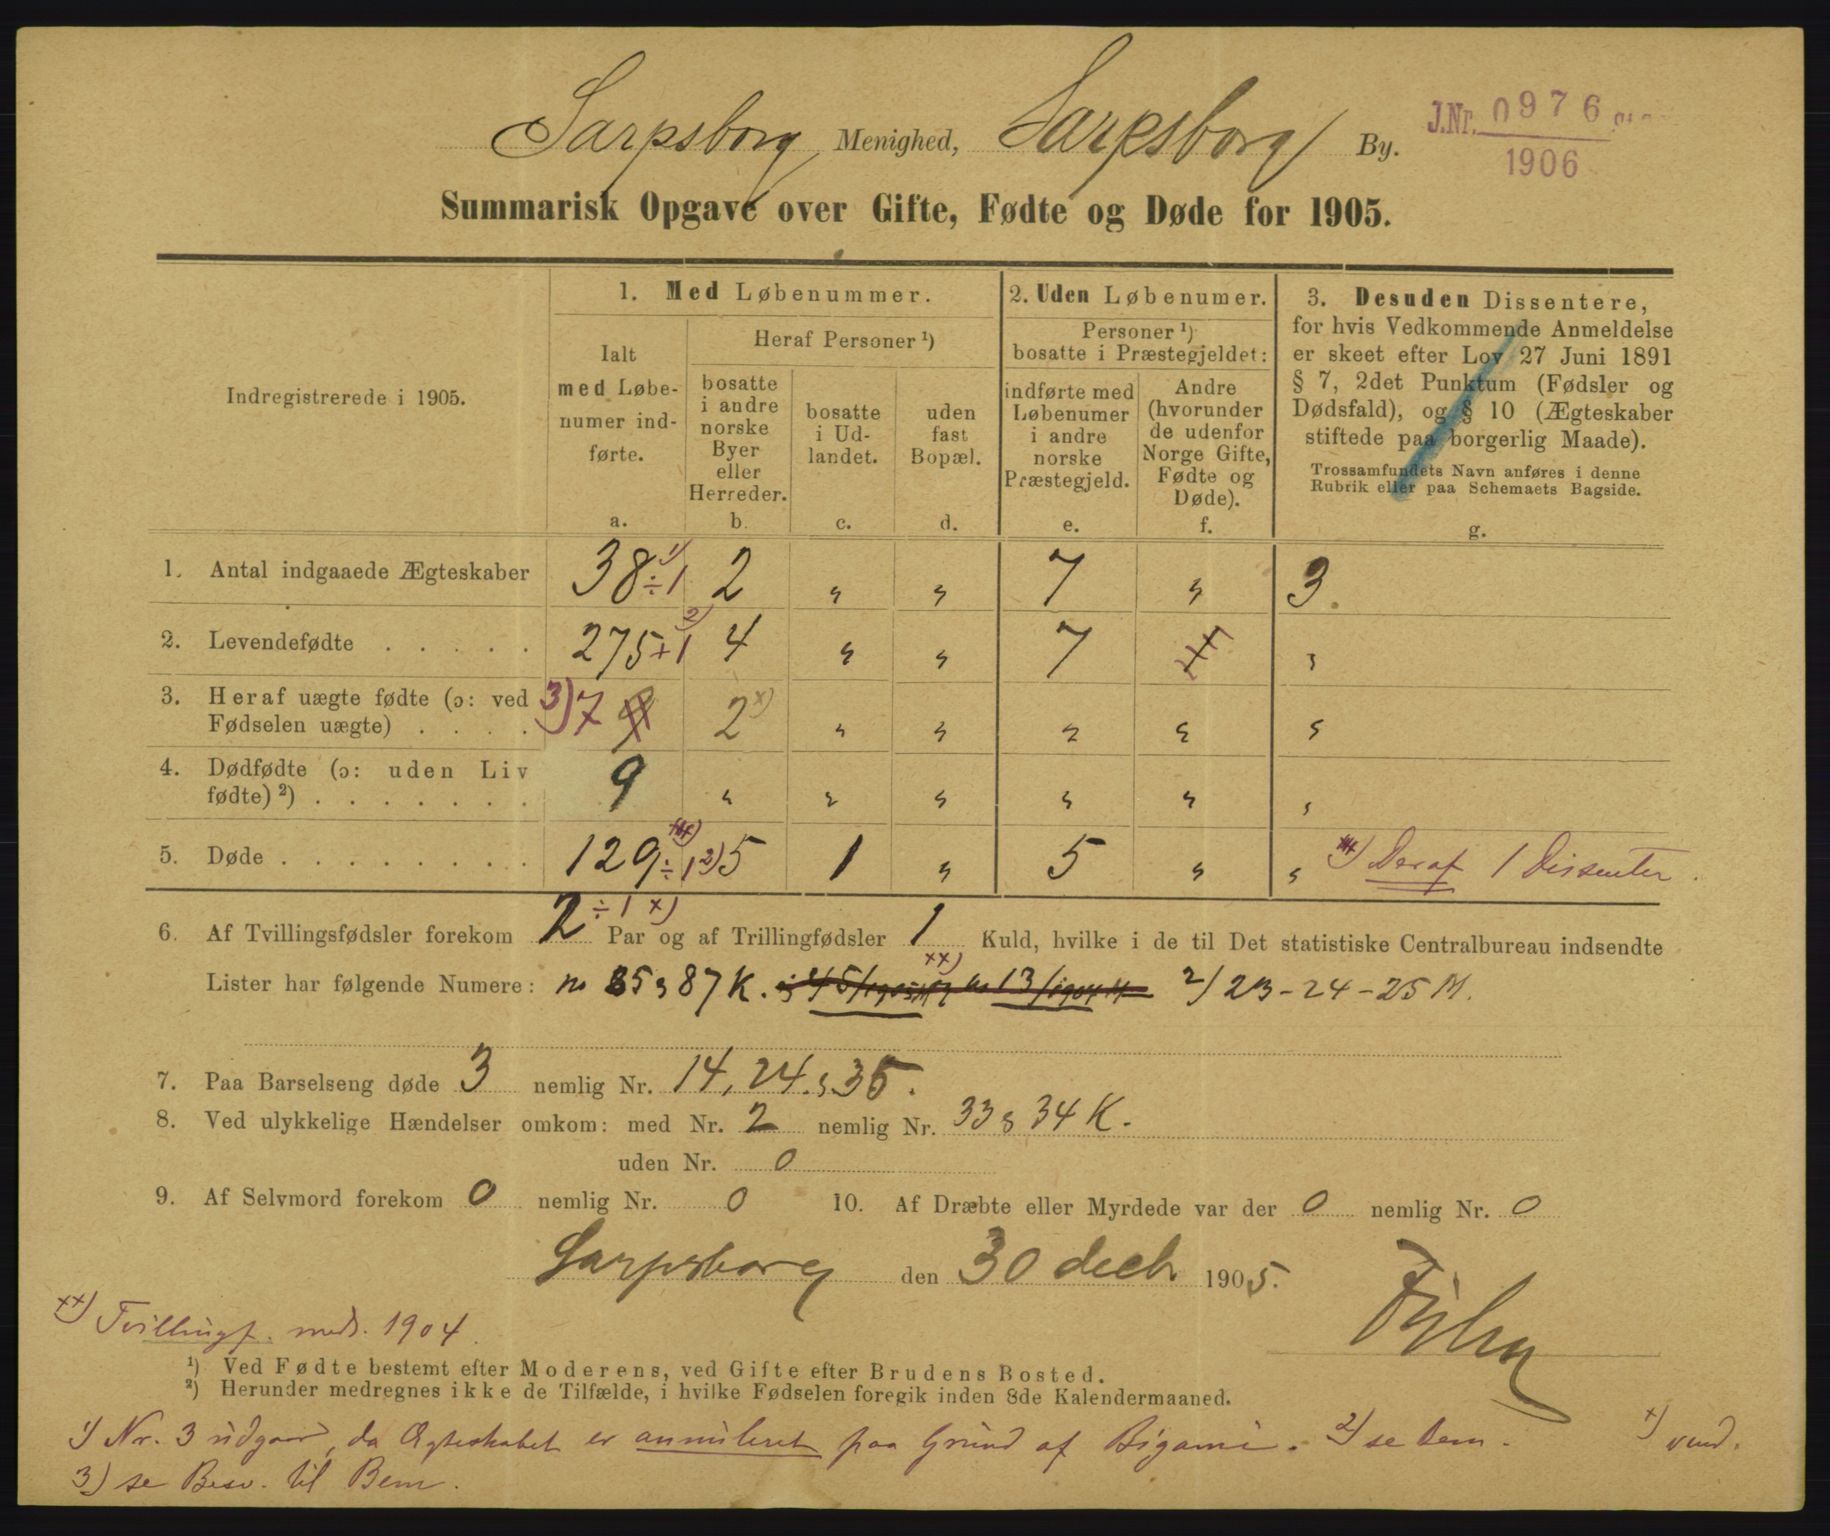 Sarpsborg Menighed, Sarpsborg By.
J.Nr. 0976
1906
Summarisk Opgave over Gifte, Fødte og Døde for 1905.
Indregistrerede i 1905.
1. Med Løbenummer.
Ialt med Løbenumer indførte.
a.
Heraf Personer ¹)
bosatte i andre norske Byer eller Herreder.
b.
bosatte i Udlandet.
c.
uden fast Bopæl.
d.
2. Uden Løbenumer.
Personer ¹) bosatte i Præstegjeldet:
indførte med Løbenumer i andre norske Præstegjeld.
e.
Andre (hvorunder de udenfor Norge Gifte, Fødte og Døde).
f.
3. Desuden Dissentere,
for hvis Vedkommende Anmeldelse
er skeet efter Lov 27 Juni 1891
§ 7, 2det Punktum (Fødsler og
Dødsfald), og § 10 (Ægteskaber
stiftede paa borgerlig Maade).
Trossamfundets Navn anføres i denne
Rubrik eller paa Schemaets Bagside.
g.
1. Antal indgaaede Ægteskaber 38 ÷1 ¹) 2 „ „ 7 „ 3.
2. Levendefødte . . . . . 275 +1 ²) 4 „ „ 7 „
3. Heraf uægte fødte (ɔ: ved
Fødselen uægte) . . . . 3) 7 2 x) „ „ „ „ „
4. Dødfødte (ɔ: uden Liv
fødte) ²) . . . . . . . 9 „ „ „ „ „ „
5. Døde . . . . . . . . 129 ÷1 2) 5 1 „ 5 „ „ Deraf 1 Dissenter.
6. Af Tvillingsfødsler forekom 2 ÷1 x) Par og af Trillingfødsler 1 Kuld, hvilke i de til Det statistiske Centralbureau indsendte
Lister har følgende Numere: no 85 & 87 K. xx) 2/ 23-24-25 M.
7. Paa Barselseng døde 3 nemlig Nr. 14, 24 & 35.
8. Ved ulykkelige Hændelser omkom: med Nr. 2 nemlig Nr. 33 & 34 K.
uden Nr. 0
9. Af Selvmord forekom 0 nemlig Nr. 0 10. Af Dræbte eller Myrdede var der 0 nemlig Nr. 0
Sarpsborg den 30 decbr 1905.
xx) Tvillingf. meds. 1904.
¹) Ved Fødte bestemt efter Moderens, ved Gifte efter Brudens Bosted.
²) Herunder medregnes ikke de Tilfælde, i hvilke Fødselen foregik inden 8de Kalendermaaned.
1) Nr. 3 udgaar, da Ægteskabet er annuleret paa Grund af Bigami. 2) se Bem. x) vend.
3) se Besv. til Bem.